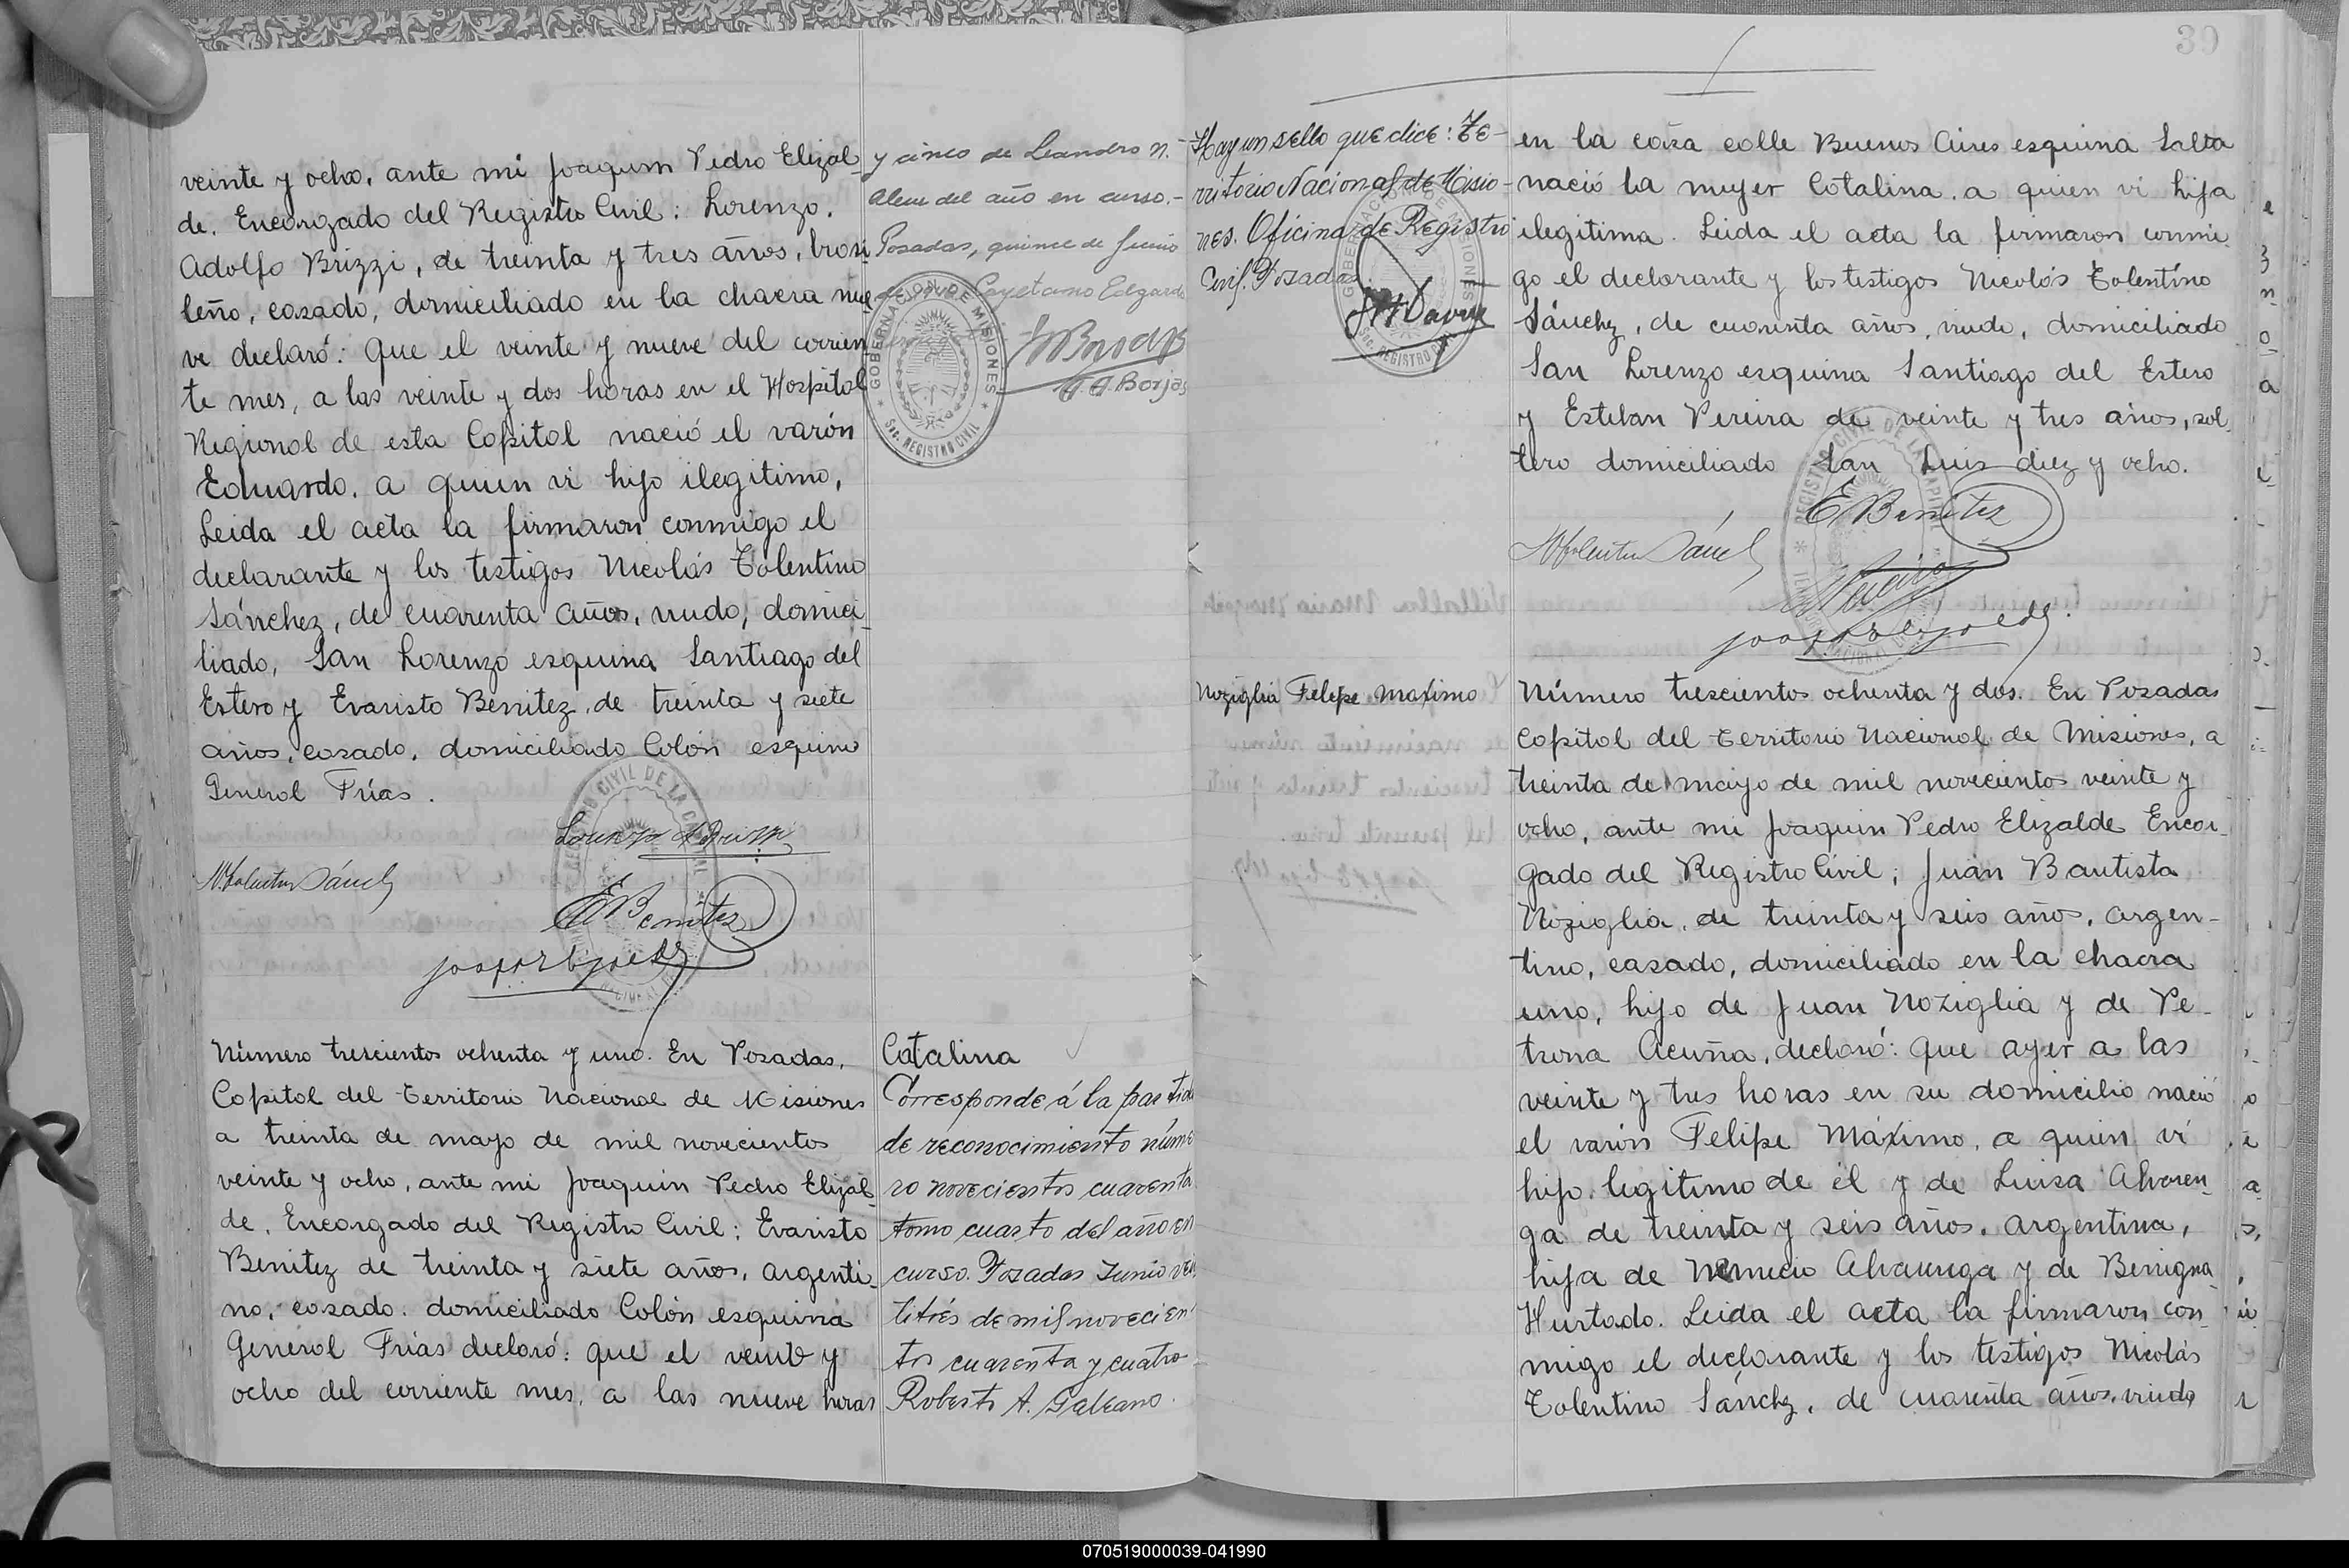 veinte y ocho, ante mi Joaquin Pedro Elizal-
de, Encargado del Registro Civil: Lorenzo
Adolfo Brizzi, de treinta y tres años, brasi-
leño, casado, domiciliado en la chacra nue-
ve declaró: Que el veinte y nueve del corrien-
te mes, a las veinte y dos horas en el Hospital
Regional de esta Capital nació el varón
Eduardo, a quien vi hijo ilegitimo,
Leida el acta la firmaron conmigo el
declarante y los testigos Nicolás Tolentino
Sánchez, de cuarenta años, viudo, domici-
liado, San Lorenzo esquina Santiago del
Estero y Evaristo Benitez, de treinta y siete
años, casado, domiciliado Colón esquina
General Frías.
Lorenzo A Brizzi
N Tolentino Sánch
E Benitez
Número trescientos ochenta y uno. En Posadas,
Capital del Territorio Nacional de Misiones
a treinta de mayo de mil novecientos
veinte y ocho, ante mi Joaquin Pedro Elizal-
de, Encargado del Registro Civil; Evaristo
Benitez de treinta y siete años, argenti-
no, casado, domiciliado Colón esquina
General Frías declaró: que el veinte y
ocho del corriente mes, a las nueve horas
y cinco de Leandro N.
Alem del año en curso.-
Posadas, quince de Junio
Cayetano Edgardo
GOBERNACION DE MISIONES
Sec. REGISTRO CIVIL
Borjas
Catalina
Corresponde á la partida
de reconocimiento núme-
ro novecientos cuarenta
tomo cuarto del año en
curso. Posadas Junio vein
titrés de mil novecien-
tos cuarenta y cuatro-
Roberto A. Galeano.
39
Hay un sello que dice: Te-
rritorio Nacional de Misio-
nes. Oficina de Registro
Civil. Posadas
GOBERNACION DE MISIONES
Sec. REGISTRO CIVIL
Noziglia Felipe Maximo
en la casa calle Buenos Aires esquina Salta
nació la mujer Catalina, a quien vi hija
ilegitima. Leida el acta la firmaron conmi-
go el declarante y los testigos Nicolás Tolentino
Sánchez, de cuarenta años, viudo, domiciliado
San Lorenzo esquina Santiago del Estero
y Esteban Pereira de veinte y tres años, sol-
tero domiciliado San Luis diez y ocho.
E Benitez
N Tolentino Sánch
Número trescientos ochenta y dos. En Posadas
Capital del Territorio Nacional de Misiones, a
treinta de mayo de mil novecientos veinte y
ocho, ante mi Joaquin Pedro Elizalde Encar-
gado del Registro Civil; Juan Bautista
Noziglia, de treinta y seis años, argen-
tino, casado, domiciliado en la chacra
uno, hijo de Juan Noziglia y de Pe-
trona Acuña, declaró: que ayer a las
veinte y tres horas en su domicilio nació
el varón Felipe Máximo, a quien vi
hijo legitimo de él y de Luisa Alvaren-
ga de treinta y seis años, argentina,
hija de Nemecio Alvarenga y de Benigna
Hurtado. Leida el acta la firmaron con-
migo el declarante y los testigos Nicolás
Tolentino Sánchez, de cuarenta años, viudo
070519000039-041990